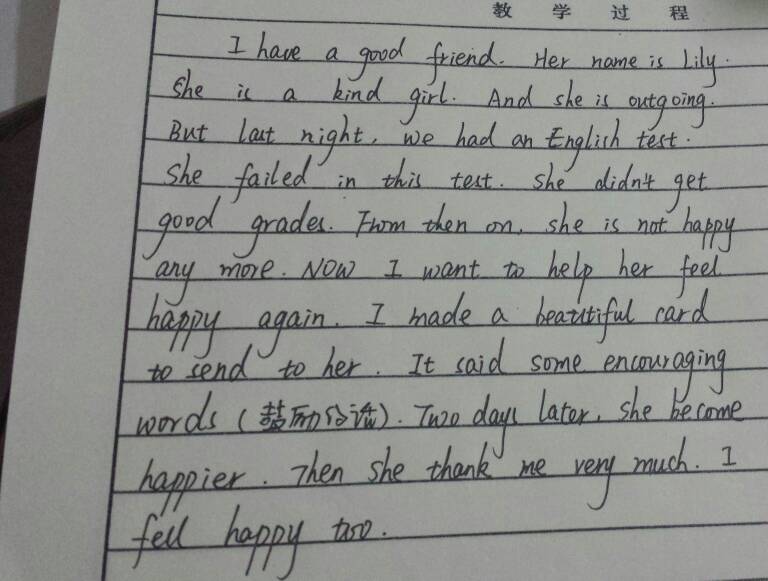 教 学 过 程
I have a good friend. Her name is Lily.
She is a kind girl. And she is outgoing.
But last night, we had an English test.
She failed in this test. She didn't get
good grades. From then on, she is not happy
any more. Now I want to help her feel
happy again. I made a beautiful card
to send to her. It said some encouraging
words (鼓励的话). Two days later, she become
happier. Then she thank me very much. I
fell happy too.